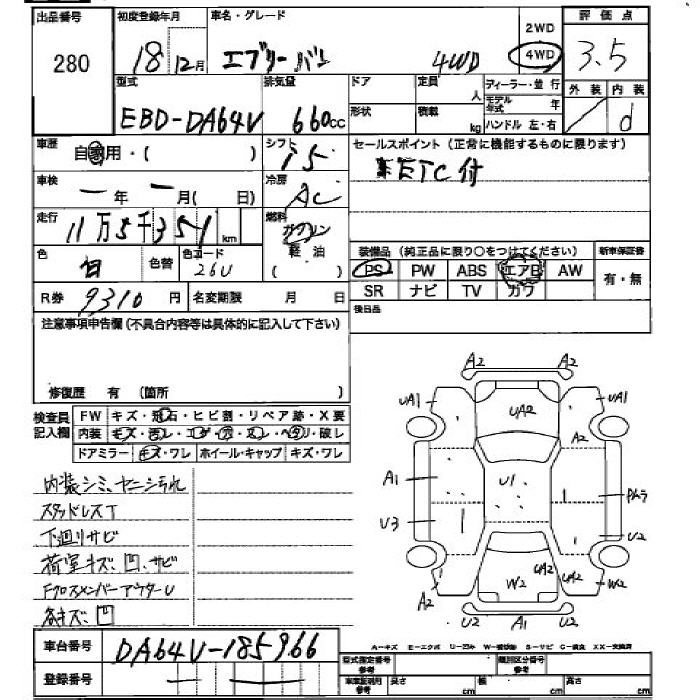 出品番号 初度登録年月 車名・グレード 2WD 評価点
280 18年 12月 エブリー バン 4WD 4WD 3.5
型式 排気量 ドア 定員 人 ディーラー・並行 外装 内装
EBD-DA64V 660cc 形状 積載 kg モデル年式 年 ハンドル 左・右 d
車歴 自家用・( ) シフト セールスポイント(正常に機能するものに限ります)
I5 ETC付
車検 ー年 ー月(日) 冷房 AC
走行 11万5千351km 燃料 ガソリン 軽油
装備品(純正品に限り○をつけてください) 新車保証書
色 白 色替 色コード 26U PS PW ABS エアB AW 有・無
R券 9310円 名変期限 月 日 SR ナビ TV カワ
注意事項申告欄(不具合内容等は具体的に記入して下さい) 後日品
修復歴 有 (箇所 )
検査員 FW キズ・飛石・ヒビ割・リペア跡・X要
記入欄 内装 キズ・汚レ・コゲ・穴・スレ・ヘタリ・破レ
ドアミラー キズ・ワレ ホイール・キャップ キズ・ワレ
A2 A2
UA1 UA2 UA1
A2
A1 U1
U3 U2
W2 UA2 UA2 W2
A2 U2 A1 U2
内装シミ、ヤニ汚れ
スタッドレスT
下廻りサビ
荷室キズ、凹、サビ
FクロスメンバーアウターU
各キズ、凹
車台番号 DA64V-185966
A-キズ E-エクボ U-凹み W-補修跡 S-サビ C-腐食 XX-交換済
登録番号 ー 型式指定番号 類別区分番号
車庫証明用参考 長さ cm 幅 cm 高さ cm